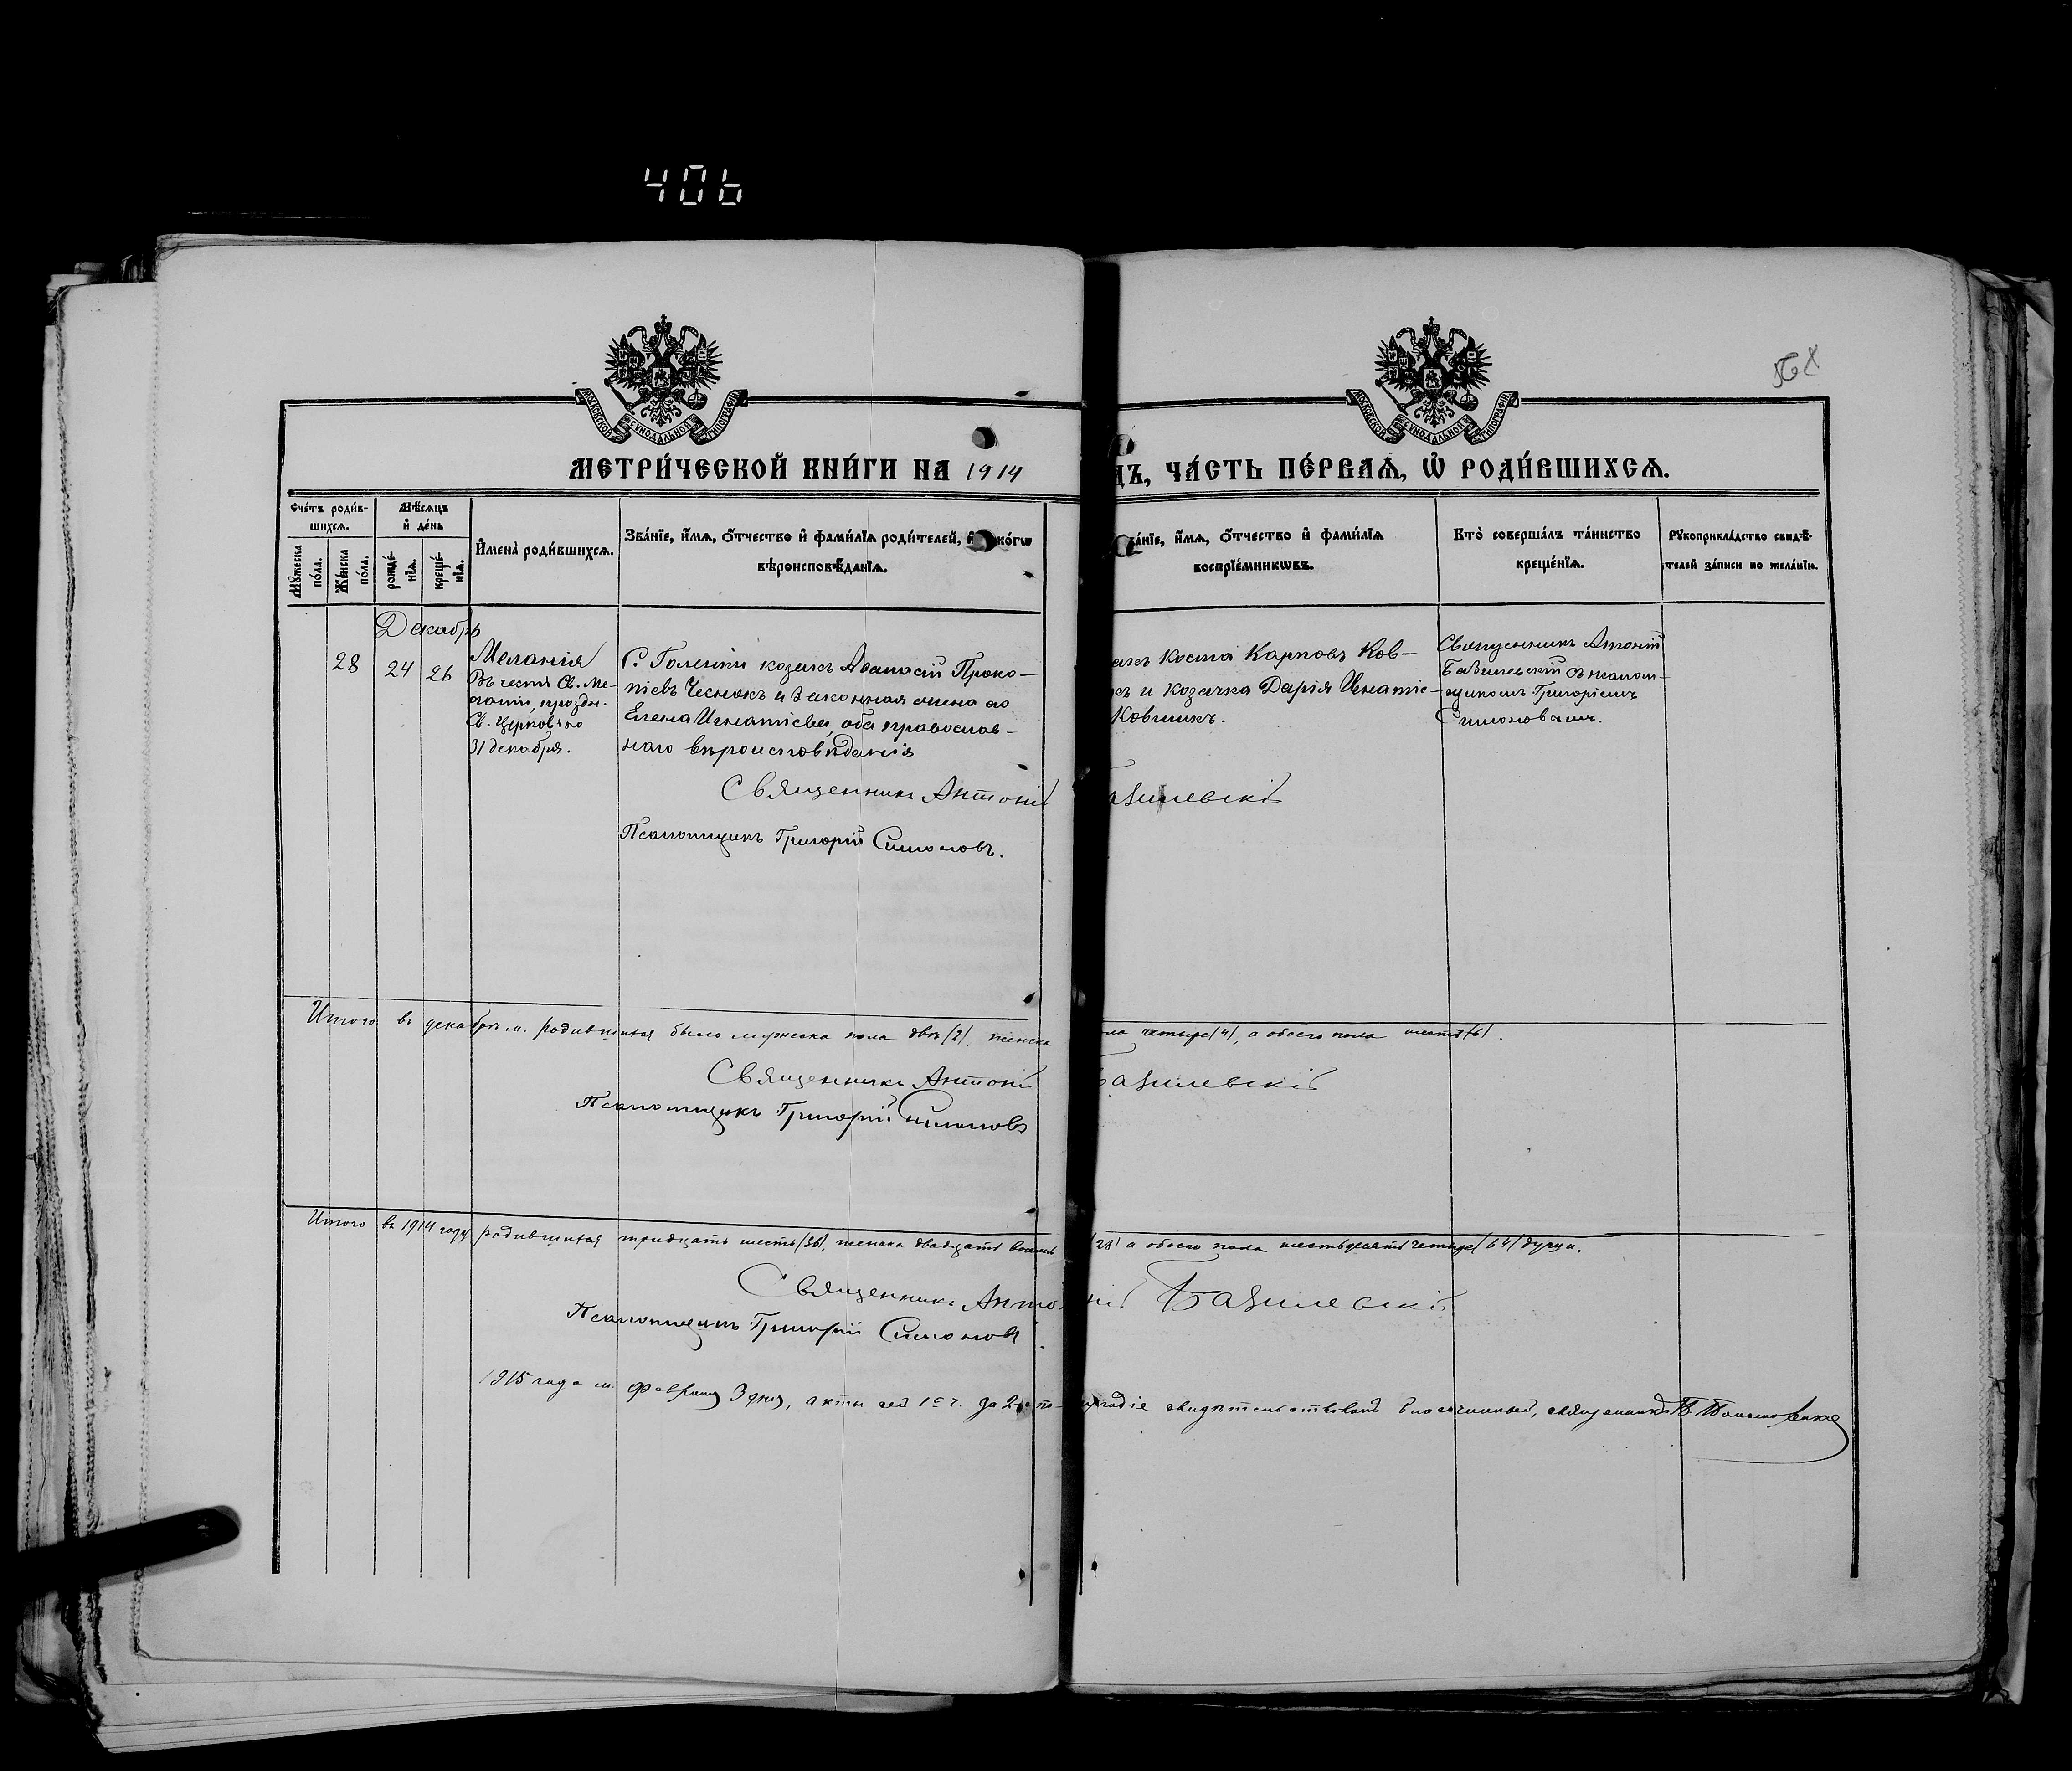 406
568
МОСКОВСКОЙ СУНОДАЛЬНОЙ ТИПОГРАФІИ
МОСКОВСКОЙ СУНОДАЛЬНОЙ ТИПОГРАФІИ
МЕТРИ́ЧЕСКОЙ КНИ́ГИ НА 1914
ДЪ, ЧА́СТЬ ПЕ́РВАѦ, Ѡ҆ РОДИ́ВШИХСѦ.
Сче́тъ роди́в-
шихсѧ.
Мѣ́сѧцъ
и҆ де́нь
Мꙋ́жеска
по́ла.
Же́нска
по́ла.
рожде́-
нїѧ.
креще́-
нїѧ.
И҆мена̀ роди́вшихсѧ.
Зва́нїе, и҆́мѧ, ѻ҆́тчество и҆ фами́лїѧ роди́телей, и҆ ко́гѡ
вѣроисповѣ́данїѧ.
ва́нїе, и҆́мѧ, ѻ҆́тчество и҆ фами́лїѧ
воспрїе́мникѡвъ.
Кто̀ соверша́лъ та́инство
креще́нїѧ.
Рꙋкоприкла́дство свидѣ́-
телей за́писи по жела́нїю.
Декабрь
28 24 26
Меланія
Въ честь Св. Ме-
ланіи, праздн.
Св. Церковію
31 декабря.
С. Голенки козакъ Аѳанасій Проко-
піевъ Чеснокъ и законная жена его
Елена Игнатіева, оба православ-
наго вѣроисповѣданія
акъ Косма Карповъ Ков-
къ и козачка Дарія Игнатіе-
Ковшикъ.
Священникъ Антоній
Базилевскій съ псалом-
щикомъ Григоріемъ
Симоновымъ.
Священникъ Антоній
азилевскій
Псаломщикъ Григорій Симоновъ.
Итого въ декабрѣ м. родившихся было мужеска пола два (2), женска
ла четыре (4), а обоего пола шесть (6).
Священникъ Антоній
Базилевскій
Псаломщикъ Григорій Симоновъ
Итого въ 1914 году родившихся тридцать шесть (36), женска двадцать восемь
(28) а обоего пола шестьдесятъ четыре (64) души.
Священникъ Антоній Базилевскій
Псаломщикъ Григорій Симоновъ
1915 года м. Февраля 3 дня, акты сей 1-й ч. за 2-е по-
угодіе свидѣтельствовалъ благочинный, священникъ